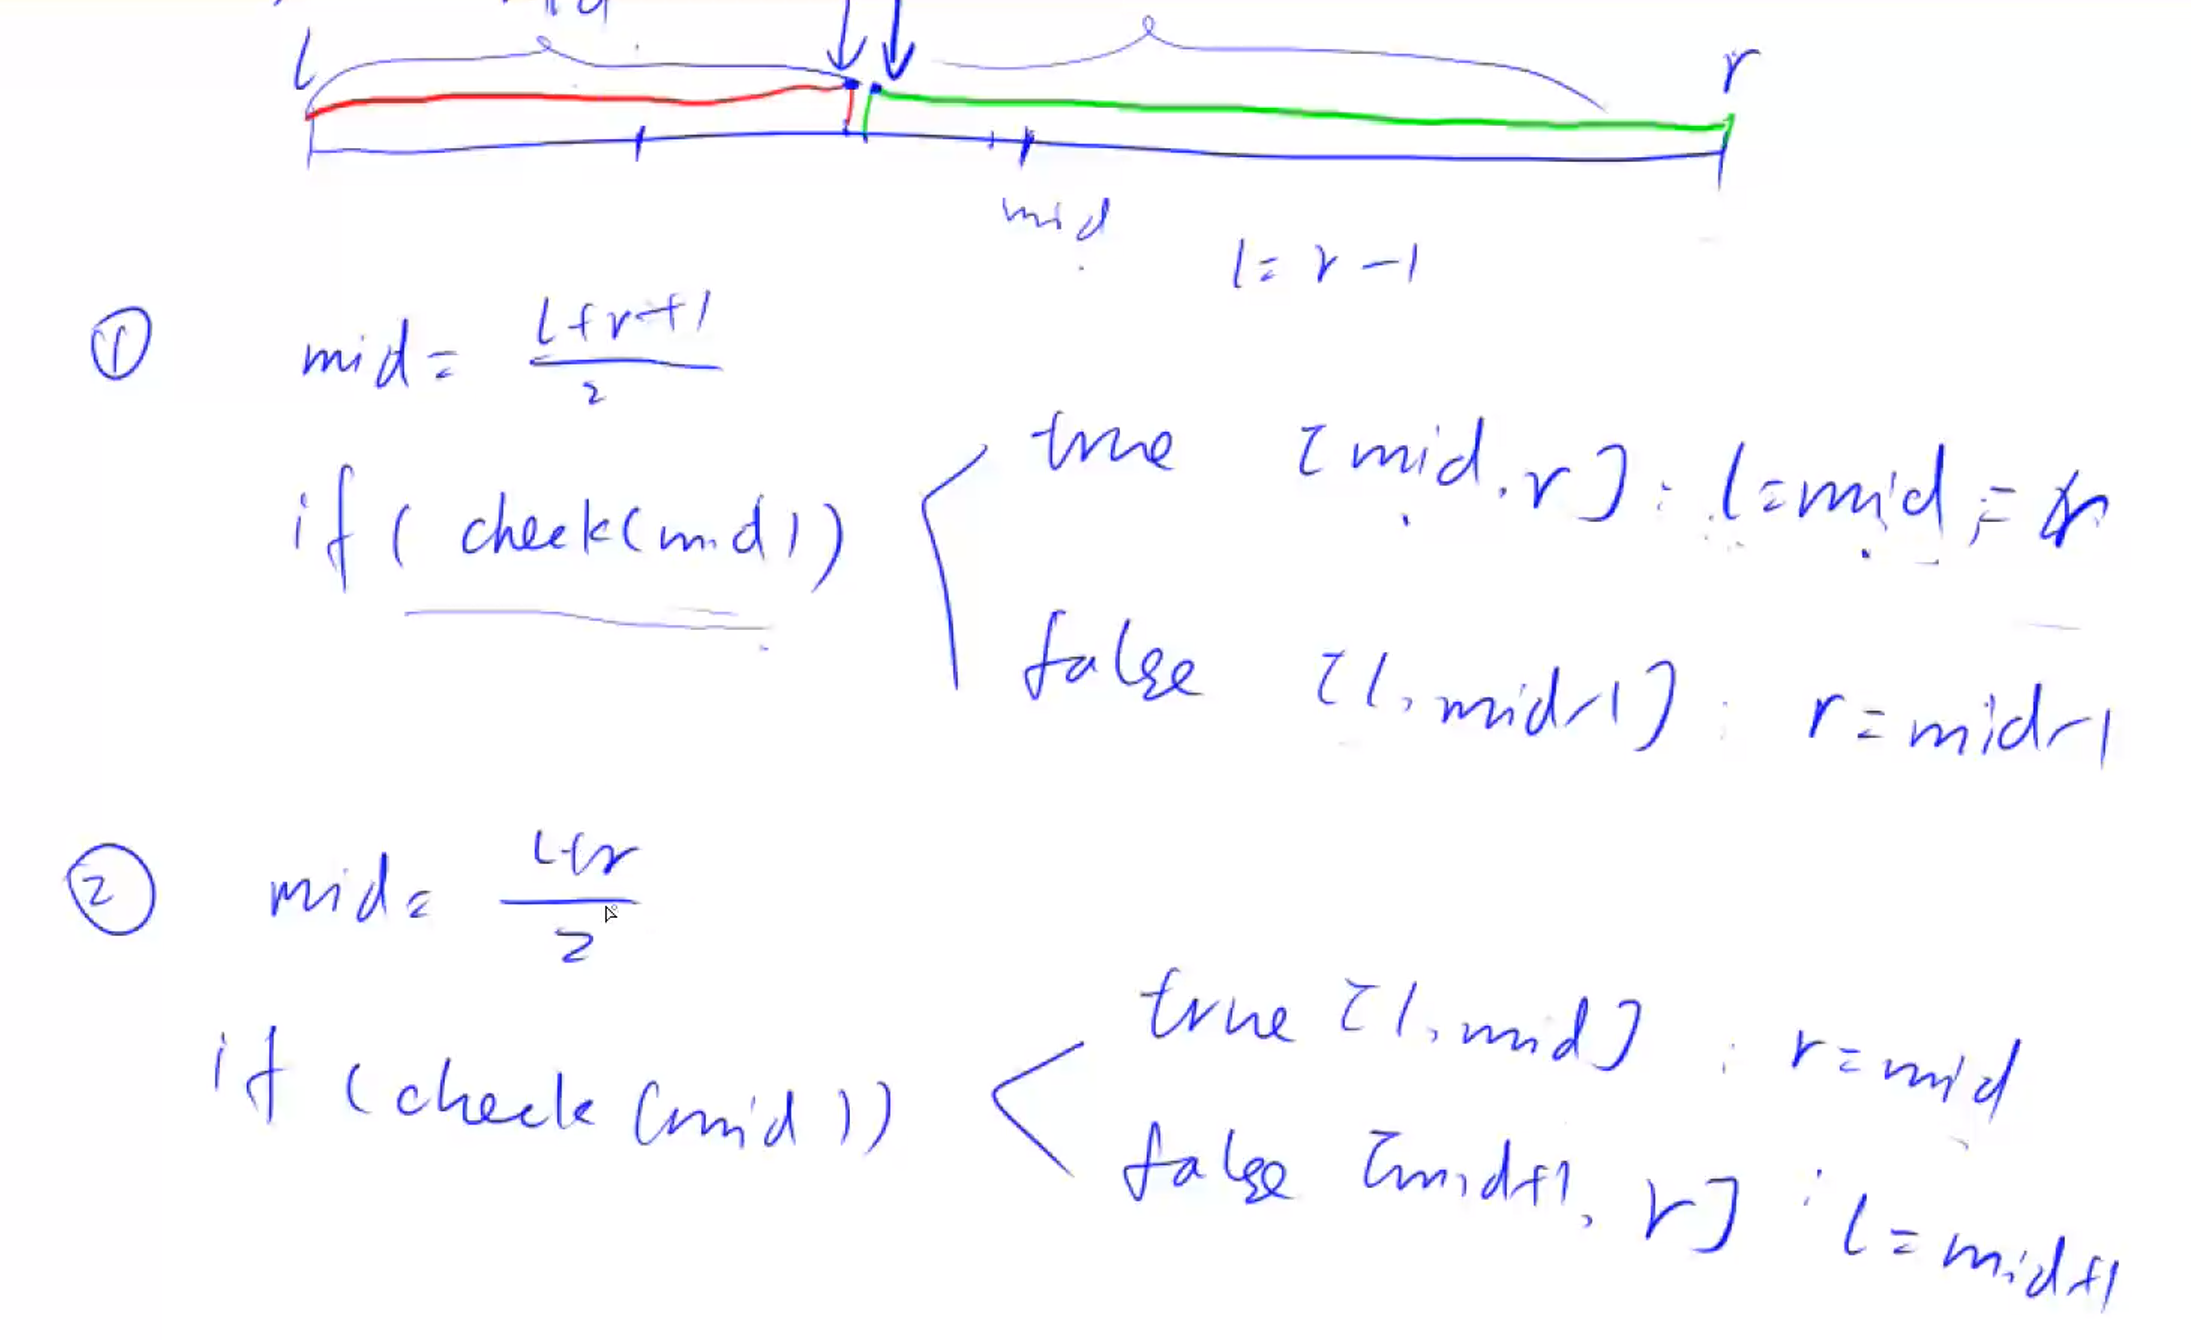 l r
mid
l = r - 1
① mid = (l+r+1)/2
true [mid, r] : l = mid ; = r
if ( check(mid))
false [l, mid-1] : r = mid-1
② mid = (l+r)/2
true [l, mid] : r = mid
if (check (mid))
false [mid+1, r] : l = mid+1